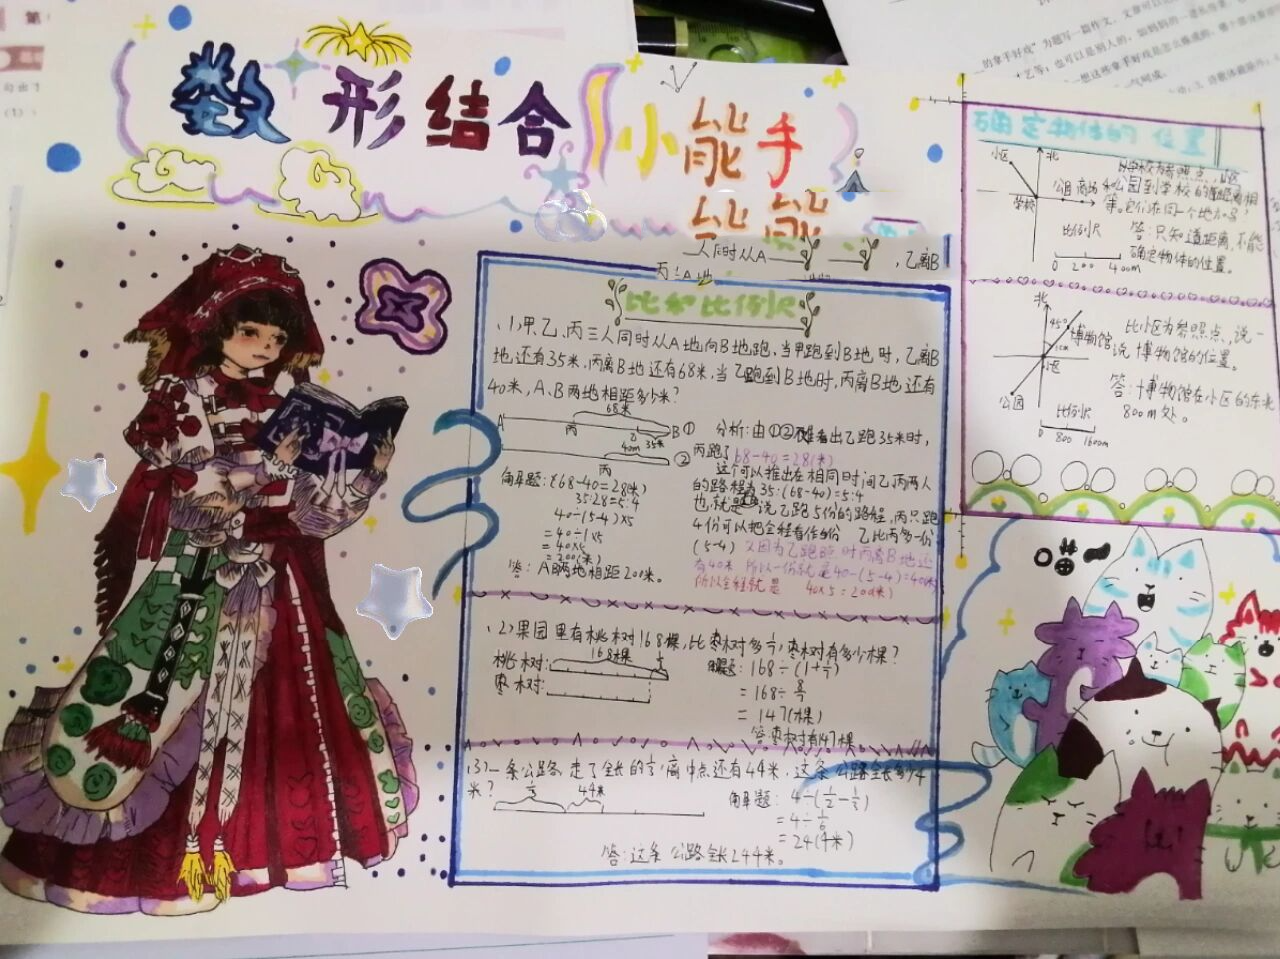 数形结合小能手
能 能
人同时从A
，乙离B
比和比例尺
(1)甲、乙、丙三人同时从A地向B地跑,当甲跑到B地时,乙离B
地还有35米,丙离B地还有68米,当乙跑到B地时,丙离B地还有
40米,A、B两地相距多少米?
68米
A
丙
乙
B ①
40m
35米
②
丙
解题:68-40=28(米)
35:28=5:4
40÷(5-4)×5
=40÷1×5
=40×5
=200(米)
答:A、B两地相距200米。
分析:由①②不难看出乙跑35米时,
丙跑了68-40=28(米)
这个可以推出在相同时间乙丙两人
的路程为35:(68-40)=5:4
也就是说乙跑5份的路程,丙只跑
4份可以把全程看作5份 乙比丙多一份
(5-4) 又因为乙跑到B地时丙离B地还
有40米 所以一份就是40÷(5-4)=40(米)
所以全程就是 40×5=200(米)
(2)果园里有桃树168棵,比枣树多1/7,枣树有多少棵?
168棵
桃树:
枣树:
解题:168÷(1+1/7)
=168÷8/7
=147(棵)
答:枣树有147棵
(3)一条公路,走了全长的1/3,离中点还有44米,这条公路全长多少
米?
1/3
44米
解题: 4÷(1/2-1/3)
=4÷1/6
=24(米)
答:这条公路全长244米。
确定物体的位置
小区
北
公园 商场
学校
比例尺
0 200 400m
以学校为参照点,小区
和公园到学校的距离相
等。它们在同一个地方吗?
答:只知道距离,不能
确定物体的位置。
北
45°
博物馆
1cm
小区
公园
比例尺
0 800 1600m
比小区为参照点,说一
说博物馆的位置。
答:博物馆在小区的东北
800m处。